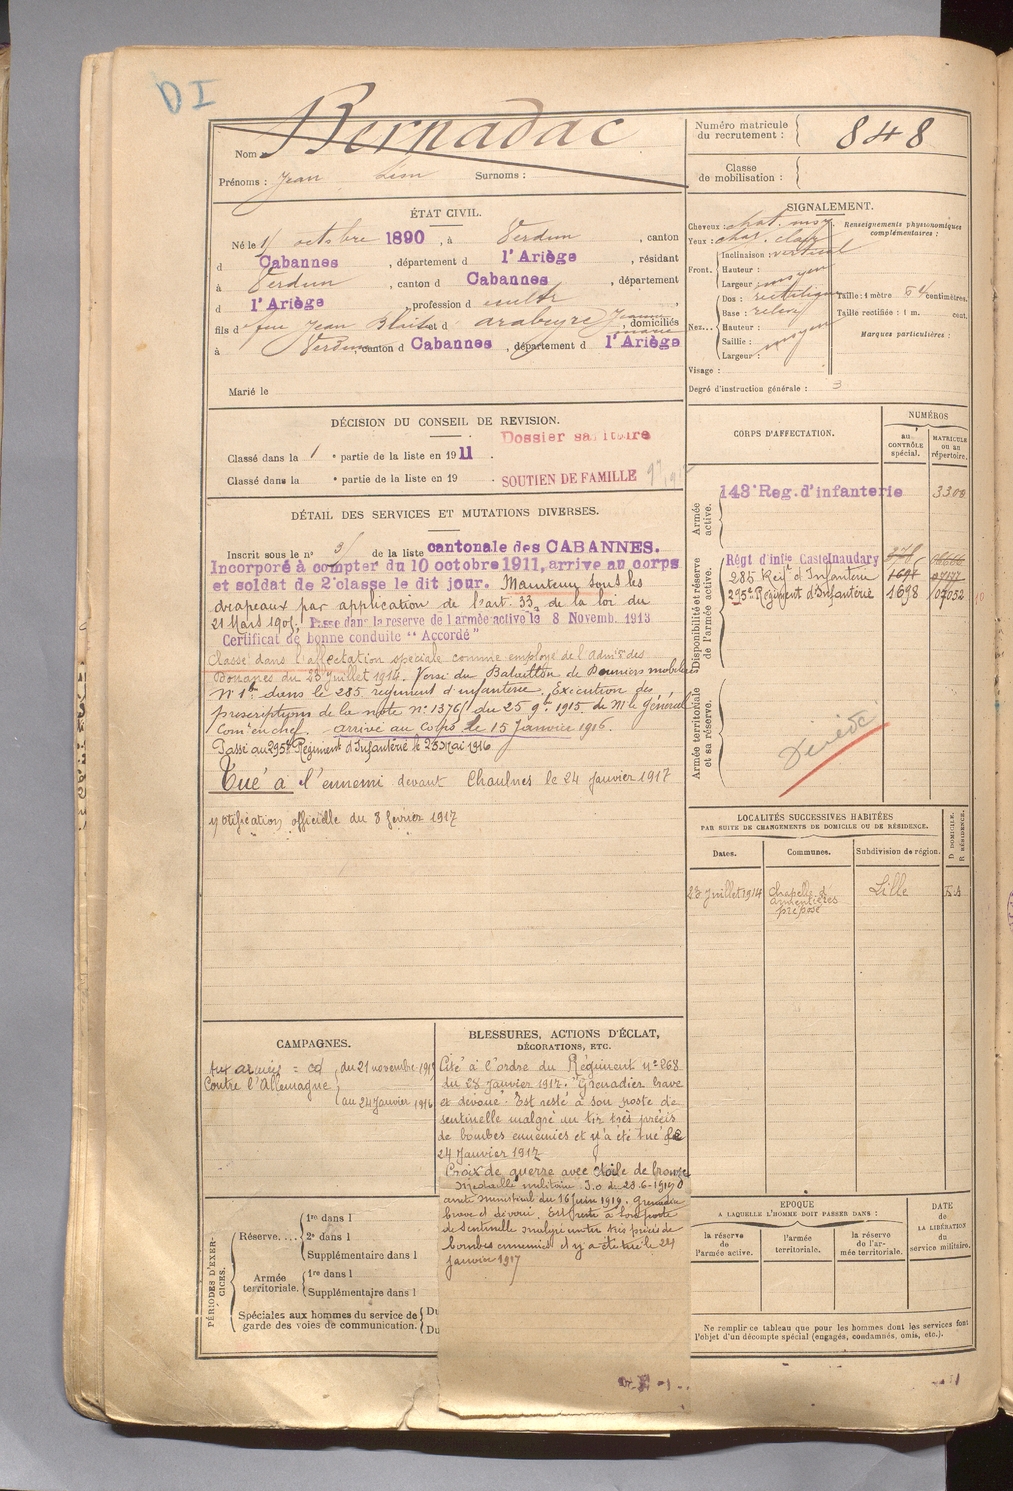 DI
Nom Bernadac
Prénoms : Jean Léon Surnoms :
Numéro matricule du recrutement : 848
Classe de mobilisation :
ÉTAT CIVIL.
Né le 1 octobre 1890, à Verdun, canton
d Cabannes, département d l'Ariège, résidant
à Verdun, canton d Cabannes, département
d l'Ariège, profession d cultr,
fils d feu Jean et d arabeyre Jeanne marie, domiciliés
à Verdun, canton d Cabannes, département d l'Ariège
Marié le
SIGNALEMENT.
Cheveux : chat. moy
Yeux : chat. clair
Renseignements physionomiques complémentaires :
Front. Inclinaison : vertical
Hauteur :
Largeur : moyen
Nez... Dos : rectiligne
Base : relevé
Hauteur :
Saillie :
Largeur : moyen
Taille : 1 mètre 54 centimètres.
Taille rectifiée : 1 m. cent.
Marques particulières :
Visage :
Degré d'instruction générale : 3
DÉCISION DU CONSEIL DE REVISION.
Dossier sanitaire
Classé dans la 1 e partie de la liste en 1911.
Classé dans la e partie de la liste en 19 .
SOUTIEN DE FAMILLE
DÉTAIL DES SERVICES ET MUTATIONS DIVERSES.
Inscrit sous le n° 3 de la liste cantonale des CABANNES.
Incorporé à compter du 10 octobre 1911, arrive au corps
et soldat de 2e classe le dit jour. Maintenu sous les
drapeaux par application de l'art. 33 de la loi du
21 Mars 1905. Passé dans la réserve de l'armée active le 8 Novemb. 1913
Certificat de bonne conduite "Accordé"
Classé dans l'affectation spéciale comme employé de l'Admon des
Douanes du 23 Juillet 1914. Versé du Bataillon de Douaniers mobiles
N° 1 dans le 285 régiment d'infanterie. Exécution des
prescriptions de la note n° 1376/ du 25 9bre 1915 de M le Général
Com en chef. arrivé au corps le 15 Janvier 1916.
Passé au 295e Régiment d'Infanterie le 25 Mai 1916
Tué à l'ennemi devant Chaulnes le 24 Janvier 1917
notification officielle du 8 février 1917
CORPS D'AFFECTATION.
NUMÉROS
au CONTRÔLE spécial.
MATRICULE ou au répertoire.
Armée active.
143e Reg. d'infanterie 3300
Disponibilité et réserve de l'armée active.
Régt d'infie Castelnaudary
285 Reg t d'Infanterie 1697
295e Régiment d'Infanterie 1698 07032
Armée territoriale et sa réserve.
Décédé
LOCALITÉS SUCCESSIVES HABITÉES
PAR SUITE DE CHANGEMENTS DE DOMICILE OU DE RÉSIDENCE.
Dates.
Communes.
Subdivision de région.
D DOMICILE. R RÉSIDENCE.
23 Juillet 1914 Chapelle d'armentières préposé Lille
CAMPAGNES.
Aux armées = cd du 21 novembre 1915
Contre l'Allemagne
au 24 Janvier 1916
BLESSURES, ACTIONS D'ÉCLAT,
DÉCORATIONS, ETC.
Cité à l'ordre du Régiment n° 268
du 28 Janvier 1917. "Grenadier brave
et dévoué. Est resté à son poste de
sentinelle malgré un tir très précis
de bombes ennemies et y a été tué le
24 Janvier 1917
Croix de guerre avec étoile de bronze
Médaille militaire J.o du
arrêté ministériel du 16 juin 1919. Grenadier
brave et dévoué. Est resté à son poste
de sentinelle malgré un tir très précis de
bombes ennemies et y a été tué le 24
Janvier 1917
PÉRIODES D'EXERCICES.
Réserve....
1re dans l
2e dans l
Supplémentaire dans l
Armée territoriale.
1re dans l
Supplémentaire dans l
Spéciales aux hommes du service de
garde des voies de communication.
Du
Du
EPOQUE
A LAQUELLE L'HOMME DOIT PASSER DANS :
la réserve de l'armée active.
l'armée territoriale.
la réserve de l'armée territoriale.
DATE de LA LIBÉRATION du service militaire.
Ne remplir ce tableau que pour les hommes dont les services font
l'objet d'un décompte spécial (engagés, condamnés, omis, etc.).